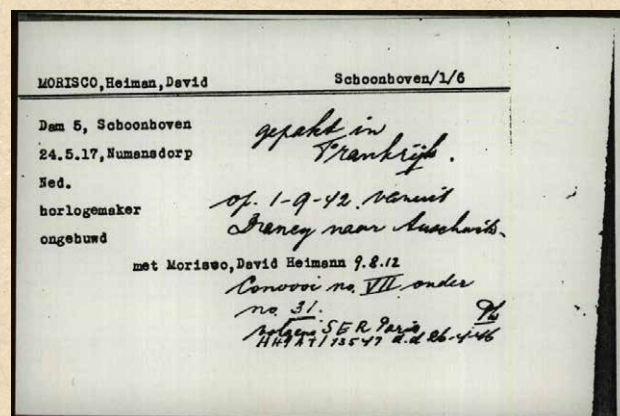 MORISCO,Heiman,David Schoonhoven/1/6
Dam 5, Schoonhoven
24.5.17,Numansdorp
Ned.
horlogemaker
ongehuwd
gepakt in
Frankrijk.
op. 1-9-42 vanuit
Drancy naar Auschwitz.
met Morisco,David Heimann 9.8.12
Convooi no. VII onder
no. 31.
volgens S E R Paris
13547 d.d 26-4-46